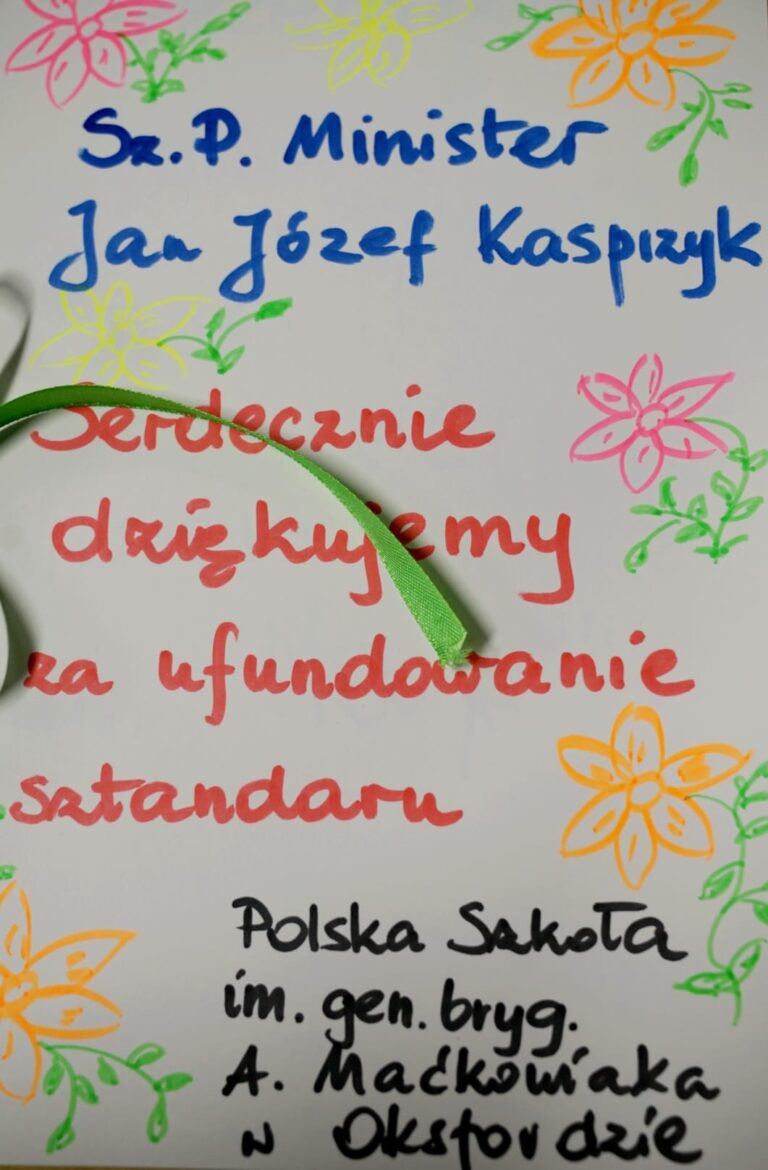 Sz. P. Minister
Jan Józef Kasprzyk
Serdecznie
dziękujemy
za ufundowanie
sztandaru
Polska Szkoła
im. gen. bryg.
A. Maćkowiaka
w Oksfordzie